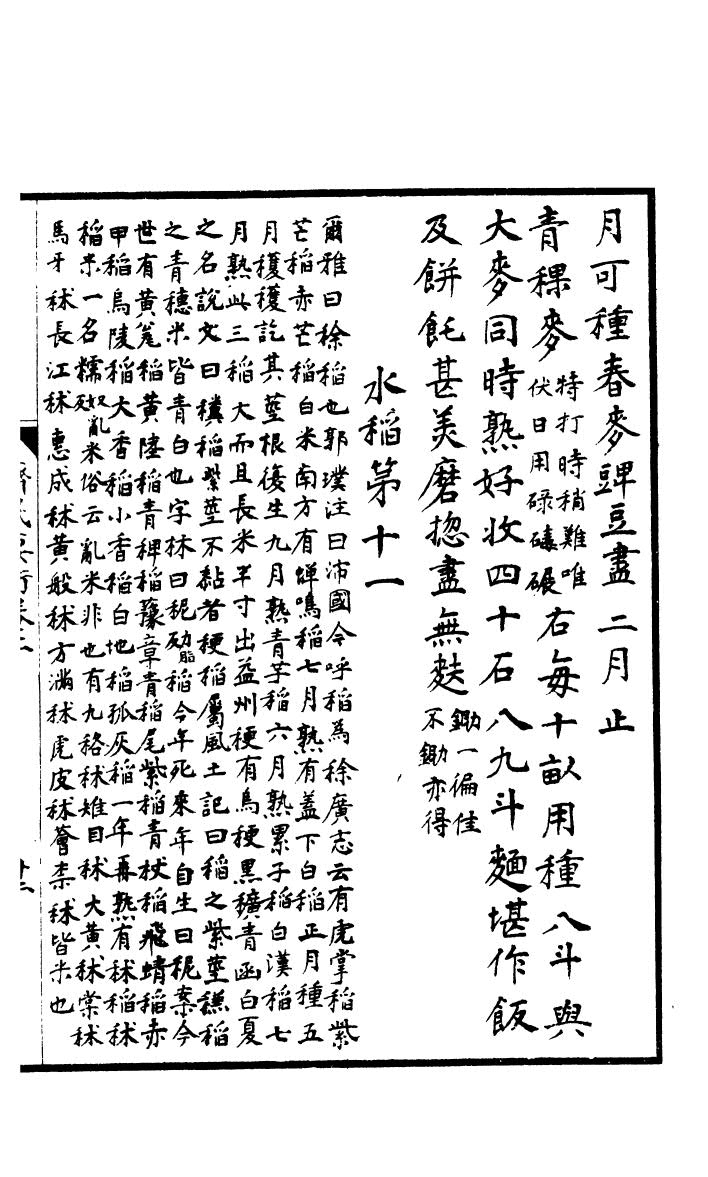 月可種春麥豍豆盡二月止
青稞麥特打時稍難唯伏日用碌礋碾右每十畝用種八斗與
大麥同時熟好收四十石八九斗麵堪作飯
及餅飥甚美磨揔盡無麩鋤一徧佳不鋤亦得
水稻第十一
爾雅曰稌稻也郭璞注曰沛國今呼稻為稌廣志云有虎掌稻紫
芒稻赤芒稻白米南方有蟬鳴稻七月熟有蓋下白稻正月種五
月穫穫訖其莖根復生九月熟青芋稻六月熟累子稻白漢稻七
月熟此三稻大而且長米半寸出益州粳有烏粳黑穬青函白夏
之名說文曰穬稻紫莖不黏者粳稻屬風土記曰稻之紫莖穬稻
之青穗米皆青白也字林曰秜力脂稻今年死來年自生曰秜案今
世有黃瓮稻黃陸稻青稗稻豫章青稻尾紫稻青杖稻飛蜻稻赤
甲稻烏陵稻大香稻小香稻白地稻孤灰稻一年再熟有秫稻秫
稻米一名糯奴亂米俗云亂米非也有九䅂秫雉目秫大黃秫棠秫
馬牙秫長江秫惠成秫黃般秫方滿秫虎皮秫薈柰秫皆米也